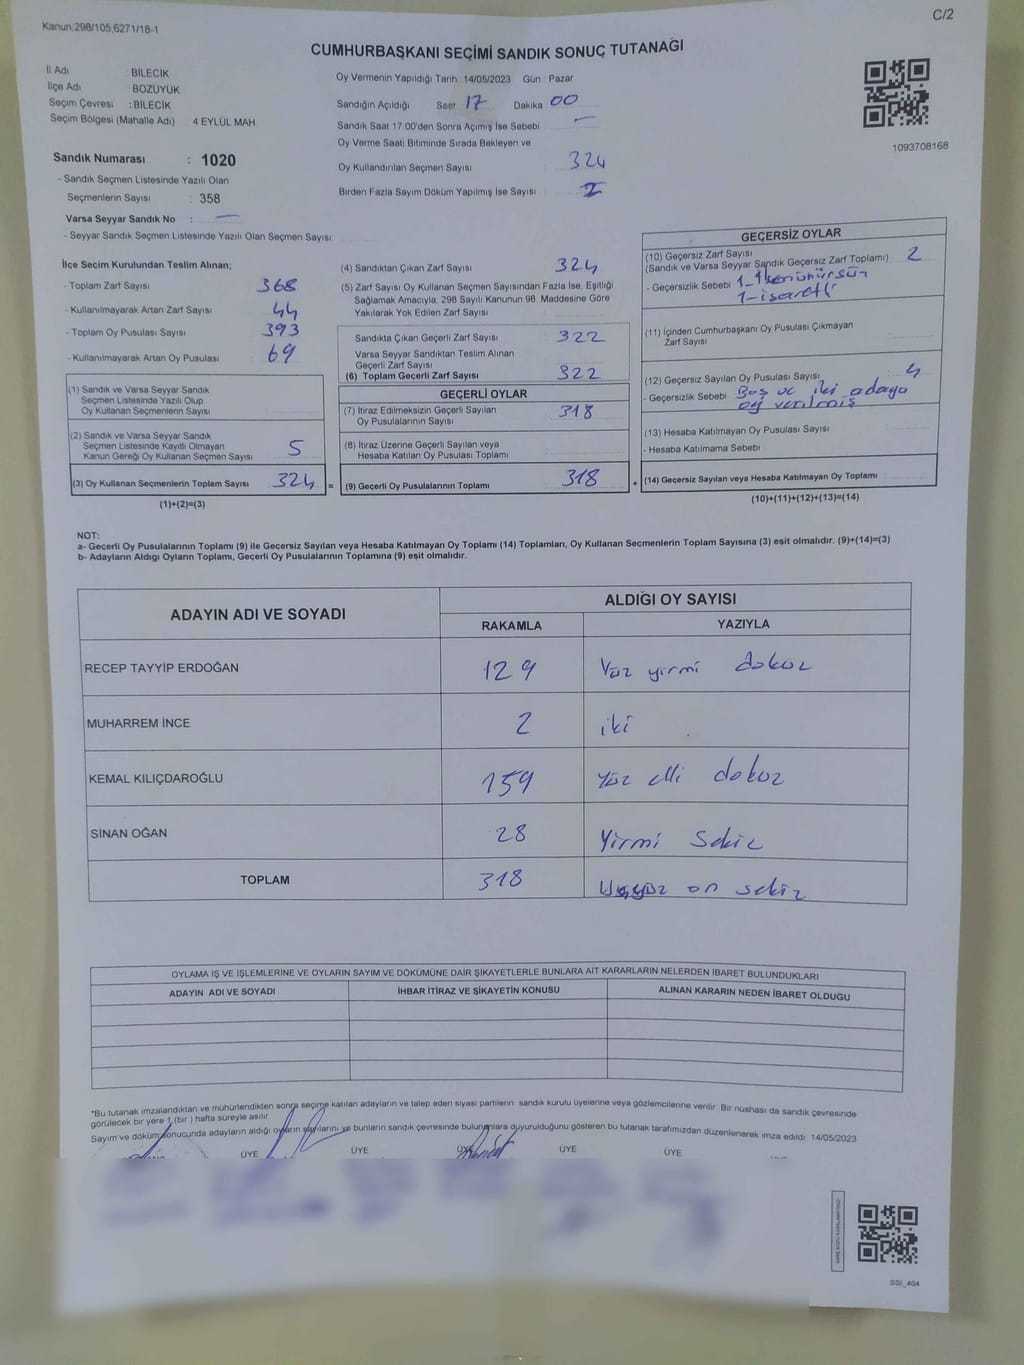 Kanun:298/105;6271/18-1
C/2
CUMHURBAŞKANI SEÇİMİ SANDIK SONUÇ TUTANAĞI
İl Adı BİLECİK
İlçe Adı BOZÜYÜK
Seçim Çevresi : BİLECİK
Seçim Bölgesi (Mahalle Adı) 4 EYLÜL MAH
Sandık Numarası : 1020
- Sandık Seçmen Listesinde Yazılı Olan
Seçmenlerin Sayısı : 358
Varsa Seyyar Sandık No : —
- Seyyar Sandık Seçmen Listesinde Yazılı Olan Seçmen Sayısı
Oy Vermenin Yapıldığı Tarih 14/05/2023 Gün Pazar
Sandığın Açıldığı Saat 17 Dakika 00
Sandık Saat 17:00'den Sonra Açımış İse Sebebi —
Oy Verme Saati Bitiminde Sırada Bekleyen ve
Oy Kullandırılan Seçmen Sayısı 324
Birden Fazla Sayım Döküm Yapılmış İse Sayısı
1093708168
İlçe Secim Kurulundan Teslim Alınan;
- Toplam Zarf Sayısı 368
- Kullanılmayarak Artan Zarf Sayısı 44
- Toplam Oy Pusulası Sayısı 393
- Kullanılmayarak Artan Oy Pusulası 69
(1) Sandık ve Varsa Seyyar Sandık
Seçmen Listesinde Yazılı Olup
Oy Kullanan Seçmenlerin Sayısı
(2) Sandık ve Varsa Seyyar Sandık
Seçmen Listesinde Kayıtlı Olmayan
Kanun Gereği Oy Kullanan Seçmen Sayısı 5
(3) Oy Kullanan Seçmenlerin Toplam Sayısı 324
(1)+(2)=(3)
(4) Sandıktan Çıkan Zarf Sayısı 324
(5) Zarf Sayısı Oy Kullanan Seçmen Sayısından Fazla İse, Eşitliği
Sağlamak Amacıyla, 298 Sayılı Kanunun 98. Maddesine Göre
Yakılarak Yok Edilen Zarf Sayısı
Sandıkta Çıkan Geçerli Zarf Sayısı 322
Varsa Seyyar Sandıktan Teslim Alınan
Geçerli Zarf Sayısı
(6) Toplam Geçerli Zarf Sayısı 322
GEÇERLİ OYLAR
(7) İtiraz Edilmeksizin Geçerli Sayılan
Oy Pusulalarının Sayısı 318
(8) İtiraz Üzerine Geçerli Sayılan veya
Hesaba Katılan Oy Pusulası Toplamı
= (9) Geçerli Oy Pusulalarının Toplamı 318
GEÇERSİZ OYLAR
(10) Geçersiz Zarf Sayısı 2
(Sandık ve Varsa Seyyar Sandık Geçersiz Zarf Toplamı)
- Geçersizlik Sebebi
1-işaretli
(11) İçinden Cumhurbaşkanı Oy Pusulası Çıkmayan
Zarf Sayısı
(12) Geçersiz Sayılan Oy Pusulası Sayısı 4
- Geçersizlik Sebebi Boş ve iki adaya
oy verilmiş
(13) Hesaba Katılmayan Oy Pusulası Sayısı
- Hesaba Katılmama Sebebi
+ (14) Geçersiz Sayılan veya Hesaba Katılmayan Oy Toplamı
(10)+(11)+(12)+(13)=(14)
NOT:
a- Geçerli Oy Pusulalarının Toplamı (9) ile Geçersiz Sayılan veya Hesaba Katılmayan Oy Toplamı (14) Toplamları, Oy Kullanan Seçmenlerin Toplam Sayısına (3) eşit olmalıdır. (9)+(14)=(3)
b- Adayların Aldığı Oyların Toplamı, Geçerli Oy Pusulalarının Toplamına (9) eşit olmalıdır.
ADAYIN ADI VE SOYADI ALDIĞI OY SAYISI
RAKAMLA YAZIYLA
RECEP TAYYİP ERDOĞAN 129 Yüz yirmi dokuz
MUHARREM İNCE 2 iki
KEMAL KILIÇDAROĞLU 159 Yüz elli dokuz
SİNAN OĞAN 28 Yirmi sekiz
TOPLAM 318 Üçyüz on sekiz
OYLAMA İŞ VE İŞLEMLERİNE VE OYLARIN SAYIM VE DÖKÜMÜNE DAİR ŞİKAYETLERLE BUNLARA AİT KARARLARIN NELERDEN İBARET BULUNDUKLARI
ADAYIN ADI VE SOYADI İHBAR İTİRAZ VE ŞİKAYETİN KONUSU ALINAN KARARIN NEDEN İBARET OLDUĞU
*Bu tutanak imzalandıktan ve mühürlendikten sonra seçime katılan adayların ve talep eden siyasi partilerin sandık kurulu üyelerine veya gözlemcilerine verilir. Bir nüshası da sandık çevresinde
görülecek bir yere 1 (bir) hafta süreyle asılır.
Sayım ve döküm sonucunda adayların aldığı oyların sayılarını ve bunların sandık çevresinde bulunanlara duyurulduğunu gösteren bu tutanak tarafımızdan düzenlenerek imza edildi. 14/05/2023
ÜYE ÜYE ÜYE ÜYE ÜYE
SSI_404